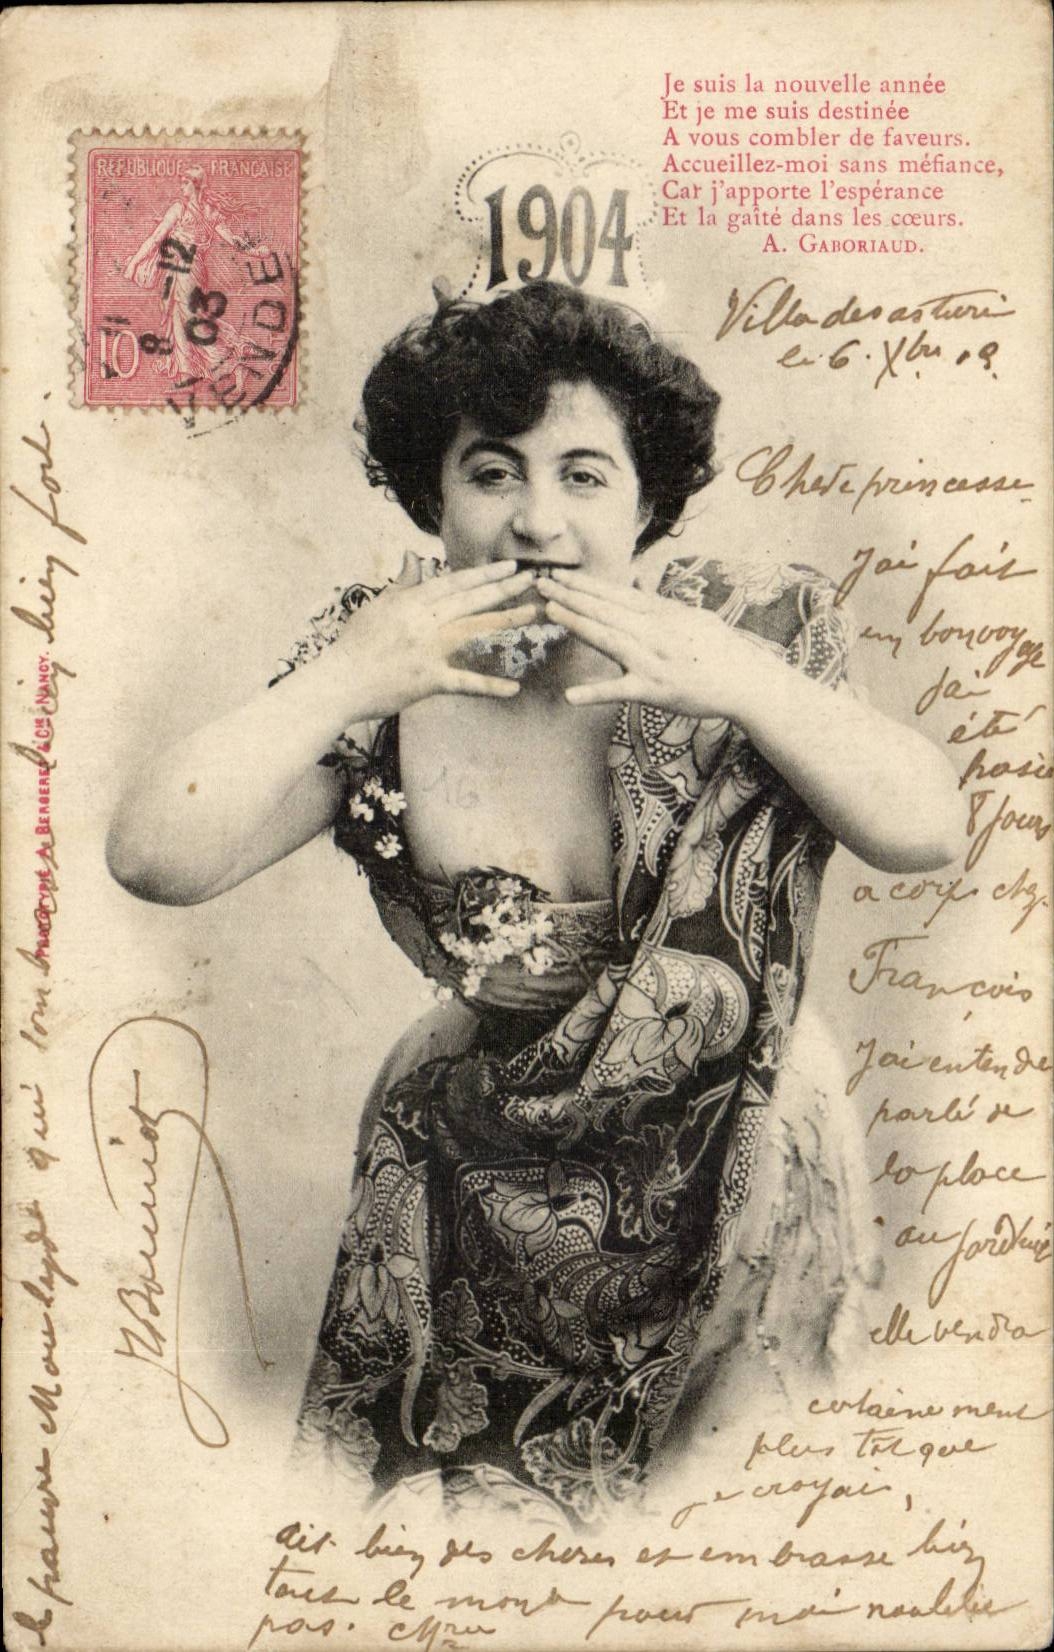 Je suis la nouvelle année
Et je me suis destinée
A vous combler de faveurs.
Accueillez-moi sans méfiance,
Car j'apporte l'espérance
Et la gaîté dans les cœurs.
A. GABORIAUD.
1904
REPUBLIQUE FRANÇAISE
10
8 -12
03
VENDÉE
le 6. Xbre
Chere princesse
J'ai fait
un bon voyage
J'ai
été
8 jours
a
François
J'ai entende
parlé de
la place
au
elle vendra
certainement
plus tot que
je croyais,
dit bien des choses et embrasse bien
tout le monde pour moi noublie
pas.
le pauvre qui bien fort.
PHOTOTYPIE A. BERGERET & Cie NANCY.